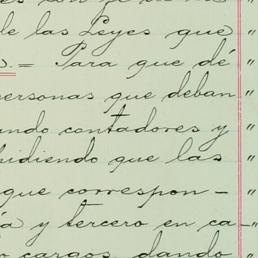 de las Leyes que
= Para que dé "
personas que deban "
ando contadores y "
pidiendo que las "
que correspon - "
y tercero en ca- "
cargos, dando